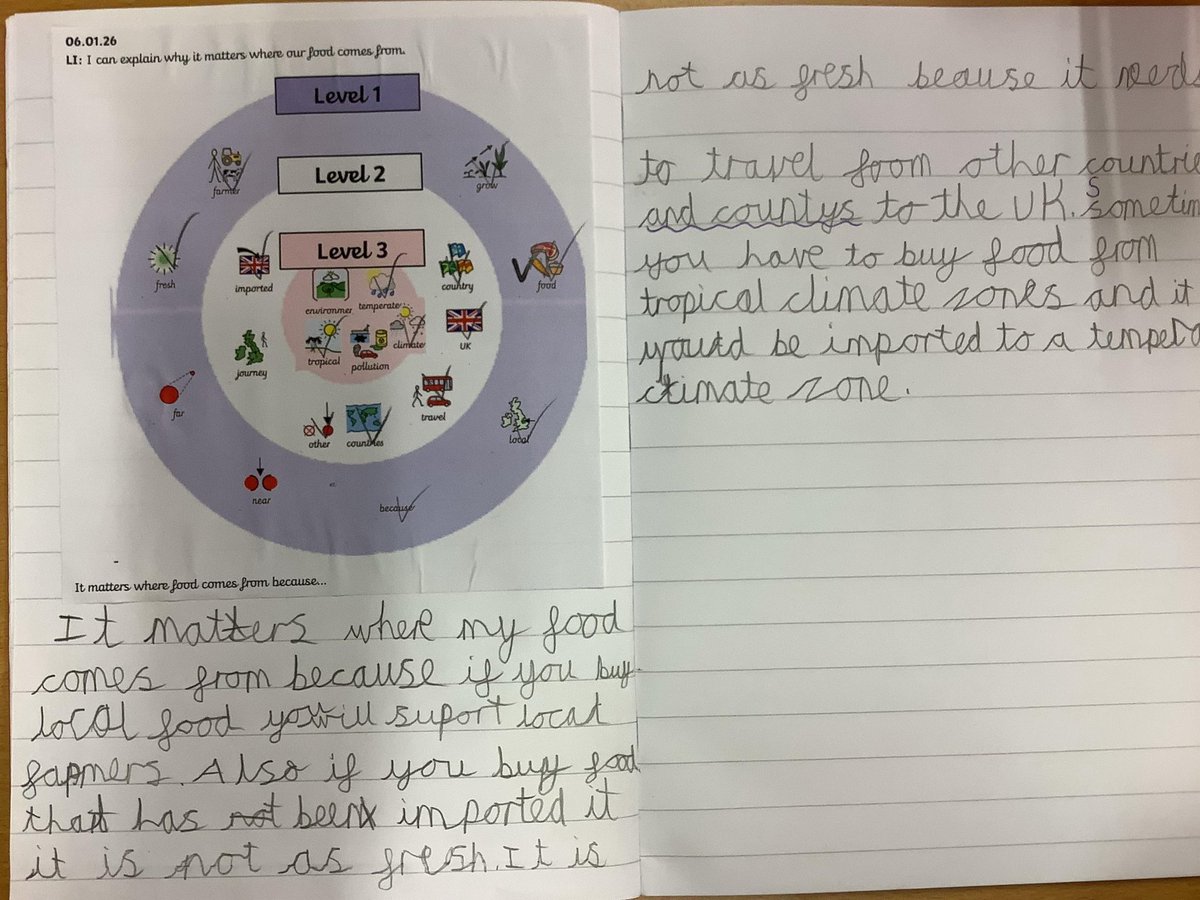 06.01.26
LI: I can explain why it matters where our food comes from.
Level 1
Level 2
Level 3
farmer
grow
fresh
imported
country
food
environmen
temperate
tropical
pollution
climate
UK
journey
far
travel
other
countries
local
near
because
It matters where food comes from because...
It matters where my food
comes from because if you buy
local food you will suport local
farmers. Also if you buy food
that has not been imported it
it is not as fresh. It is
not as fresh beause it needs
to travel from other countrie
and countys to the UK. Sometim
you have to buy food from
tropical climate zones and it
would be imported to a tempera
climate zone.